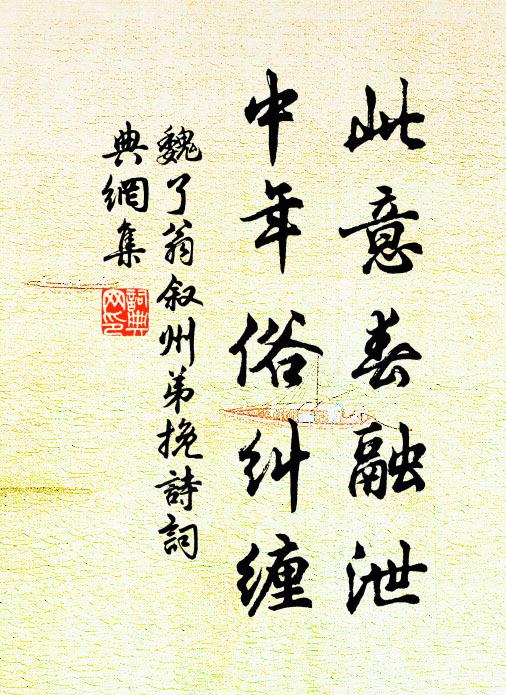 此意春融泄
中年俗纠缠
魏了翁叙州弟挽詩詞
典網集
詞典
网印